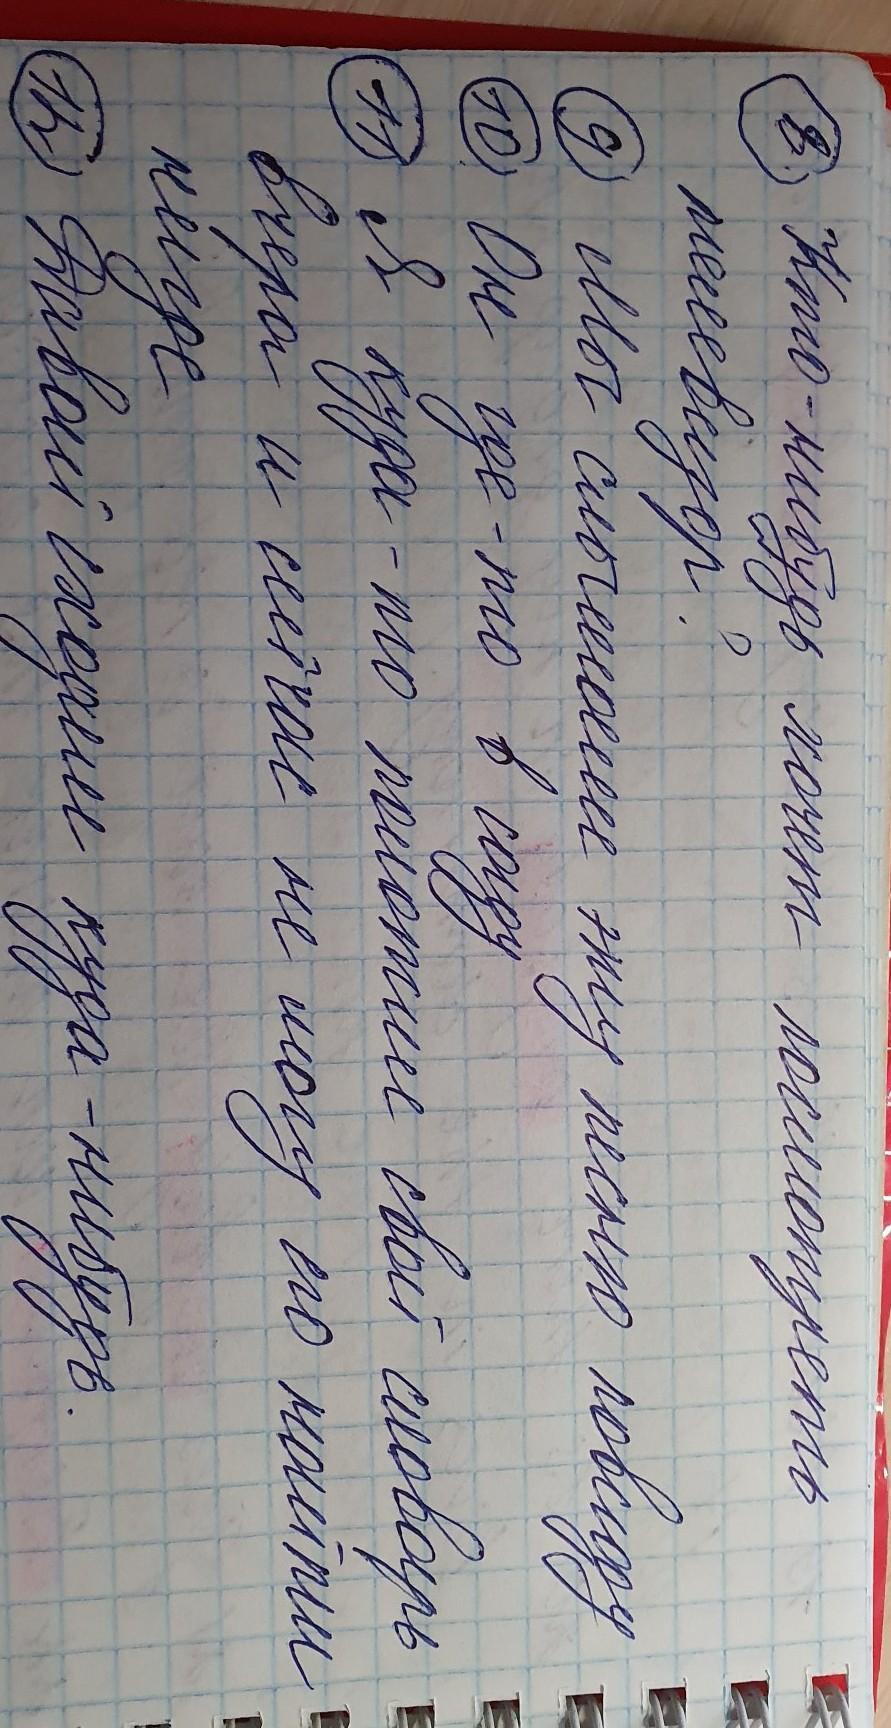 8. Кто-нибудь хочет посмотреть
телевизор?
9) Мы слышали эту песню повсюду
10) Он где-то в саду
11) Я куда-то положил свой словарь
вчера и сейчас не могу его найти
нигде
12) Давай сходим куда-нибудь.